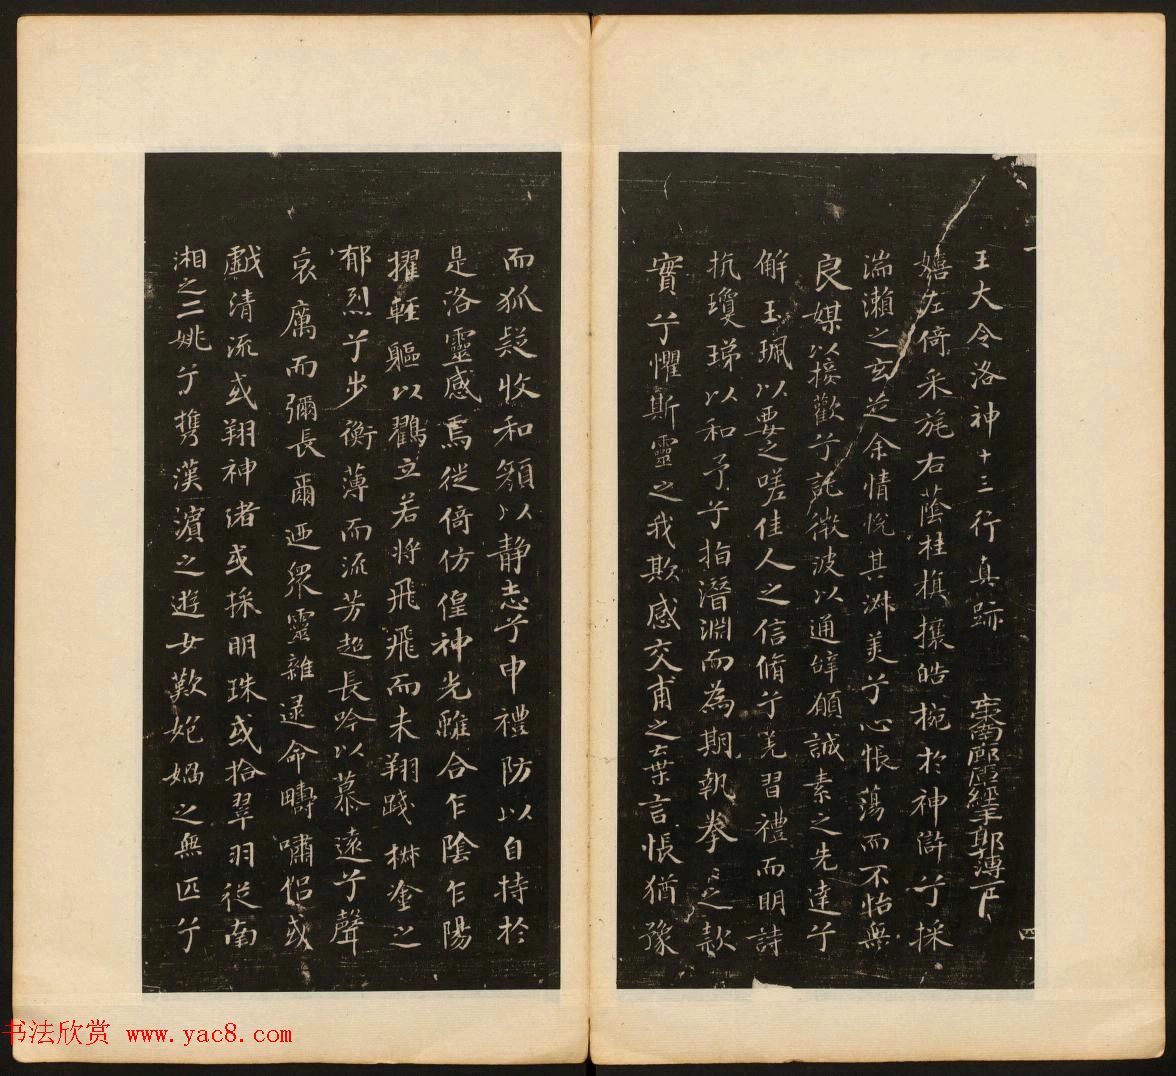 王大令洛神十三行真跡
嬉左倚采旄右蔭桂旗攘皓捥於神滸兮採
湍瀨之玄芝余情悅其淑美兮心悵蕩而不怡無
良媒以接歡兮託微波以通辭願誠素之先達兮
解玉珮以要之嗟佳人之信脩兮羌習禮而明詩
抗瓊珶以和予兮指潛淵而為期執拳〻之款
實兮懼斯靈之我欺感交甫之棄言悵猶豫
而狐疑收和顏以靜志兮申禮防以自持於
是洛靈感焉徙倚仿偟神光離合乍陰乍陽
擢輕軀以鶴立若將飛飛而未翔踐椒塗之
郁烈兮步衡薄而流芳超長吟以慕遠兮聲
哀厲而彌長爾迺衆靈雜遝命疇嘯侶或
戲清流或翔神渚或採明珠或拾翠羽從南
湘之二姚兮攜漢濱之遊女歎炮媧之無匹兮
四
书法欣赏 www.yac8.com